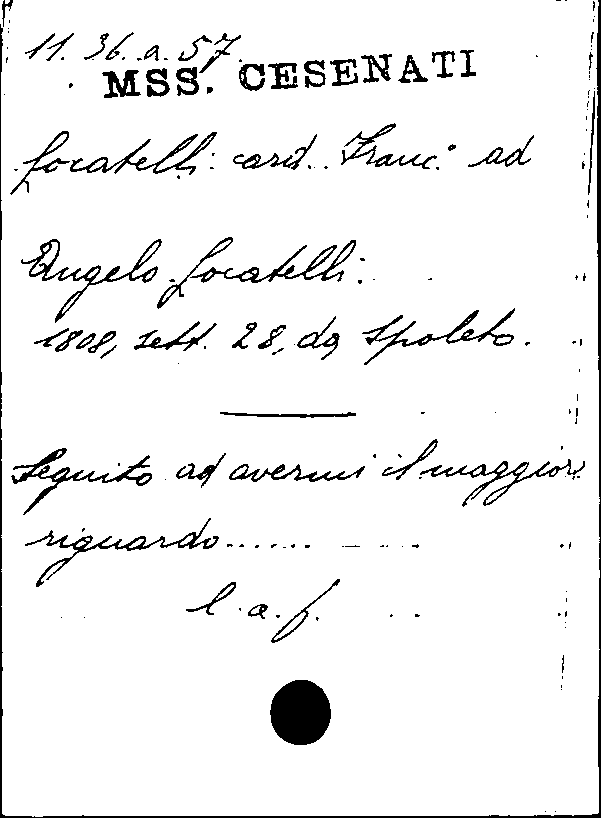 11. 36. a. 57.
MSS. CESENATI
Locatelli card. Franc.° ad
Angelo Locatelli.
1808, sett. 28, da Spoleto.
Seguito ad avermi il maggior
riguardo......
l. a. f.